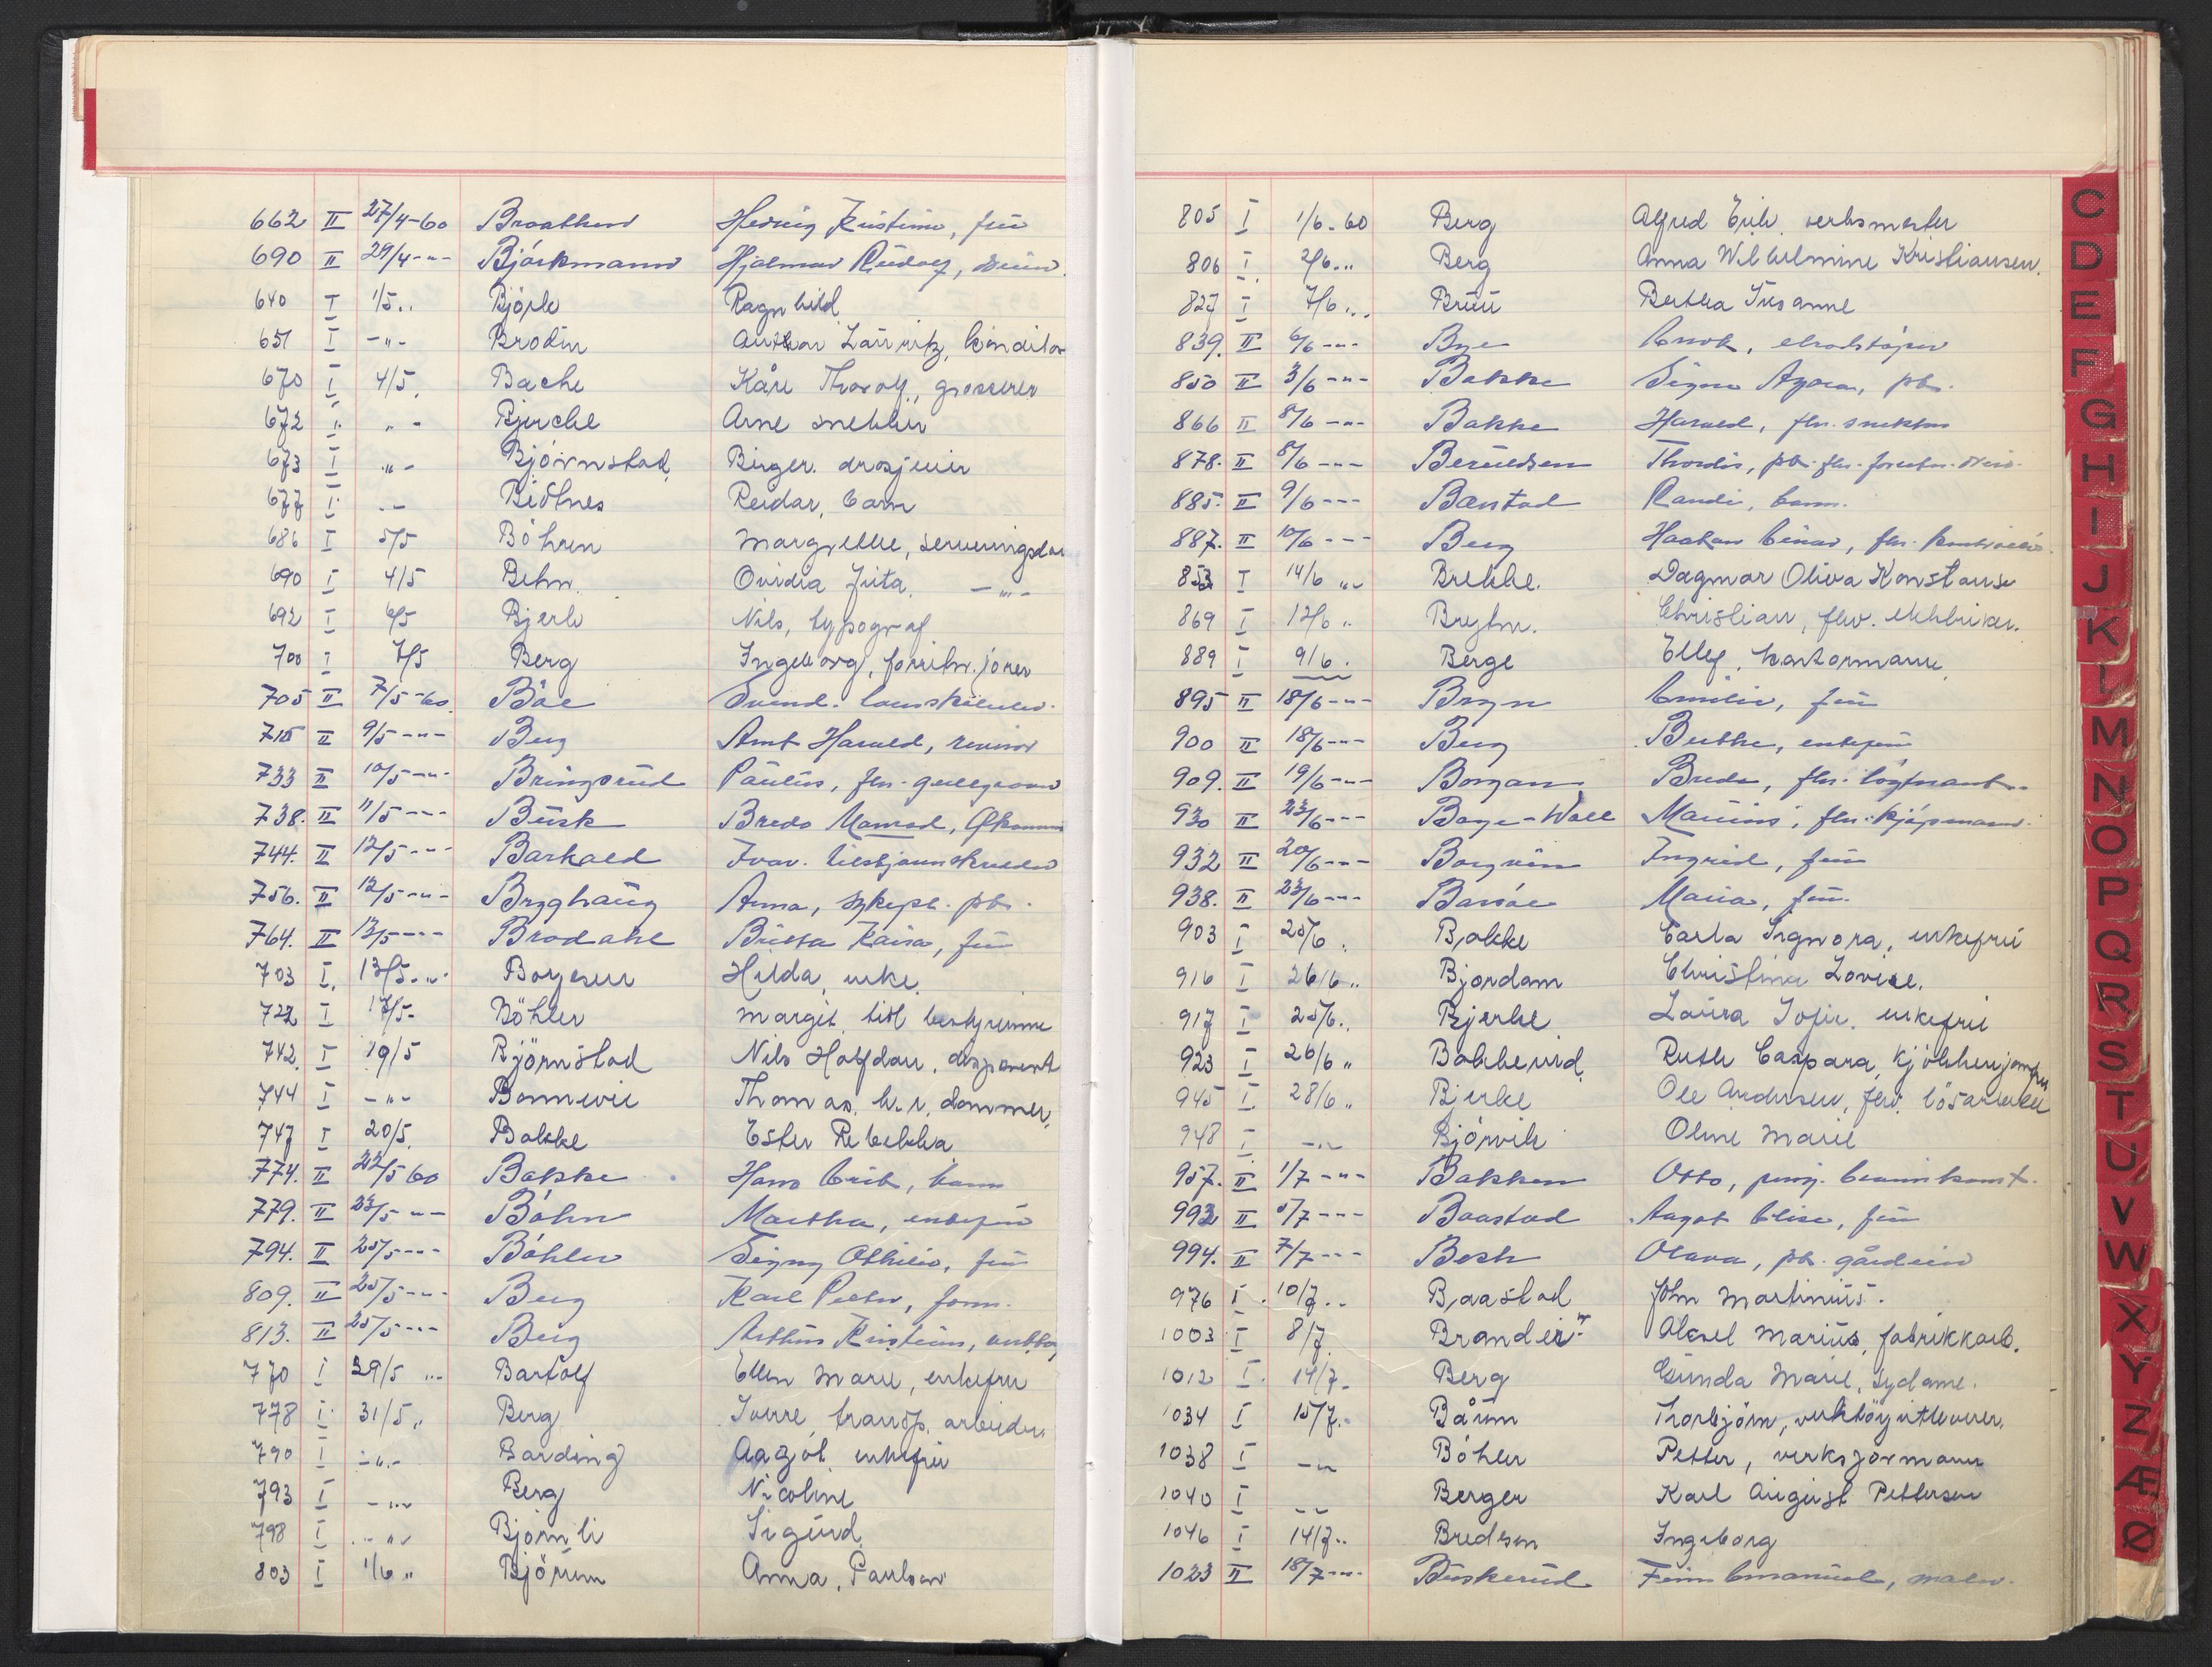 662 II 27/4-60 Braathen Hedvig Kristine, frü
690 II 29/4 -"- Björkmann Hjalmar Rüdolf,
640 I 1/5 .. Björk Ragnhild
651 I -"- Brodin Lauritz, konditor
670 I 4/5. Bache Kåre Thorolf, grosserer
672 I " - Bjerche Arne snekker
673 I "- Björnstad Birger. drosjeeier
677 I -- Reidar, barn
686 I 5/5 Böhren Margrethe, serveringsdam
690 I 4/5 Behn. Ovidia Juta. -"-
692 I 6/5 Bjerk Nils, typograf
700 I 7/5 Berg Ingeborg,
705 II 7/5-60. Böe Svend.
715 II 9/5 -"- Berg Arnt Harald, revisor
733 II 10/5 -"- Bringsrüd Paülüs, fhv.
738. II 11/5 --- Büsk Bredo
744. II 12/5 -"- Barkald Ivar.
756. II 12/5 -"- Bryghaüg Anna, sykepl. pb.
764. II 13/5 --- Brodahl Kaisa, frü
703 I. 13/5. ". Borgersen Hilda, enke.
722 I 17/5- Böhler Margit, bestyrerinne
742. I 19/5 Björnstad Nils Halfdan, disponent
744 I -"- Bonnevie Thomas, h.r. dommer
747 I 20/5. Bakke Ester Rebekka
774. II 22/5 60 Bakke Hans Erik, barn
779. II 23/5 -"- Böhn Martha, enkefrü
794. II 25/5 --- Böhler Signy Othilie, frü
809. II 25/5 -"- Berg Karl Peter, form.
813. II 25/5 --- Berg Arthür Kristian,
770 I 29/5 "- Bartolf Ellen Marie, enkefrue
778 I 31/5 " Berg Sverre, transp. arbeider.
790 I -"- Barding Aagot, enkefrü
793 I -"- Berg Nicoline
798 I -"- Björnli Sigurd
803 I 1/6 " Björum Anna, Paulsen
805 I 1/6-60 Berg Alfred Erik, verksmester
806 I 2/6 .. Berg Anna Wilhelmine Kristiansen.
827 I 7/6 .. Brüü Bertha Susanne
839. II 6/6 -"- Bye Enok,
850 II 3/6 -"- Bakke Signe Agora, pb.
866 II 8/6 -"- Bakke Harald, fhv. snekker
878. II 8/6 -"- Berüldsen Thordis, pb.
885. II 9/6 --- Bæstad Randi, barn.
887. II 10/6 --- Berg Haakon Einar, fhv.
853 I 14/6 " Brekke. Dagmar Oliva Konstanse
869 I 12/6 " Bryhn. Christian, fhv.
889 I 9/6. Berge Ellef, kontormann
895 II 18/6 -"- Bryn Emilie, frü
900 II 18/6 --- Berg Berthe, enkefrü
909. II 19/6 -"- Borgan Breda, fhv.
930 II 23/6 --- Boye-Wall Mariüs, fhv. kjöpmann.
932 II 20/6 --- Borgvin Ingrid, frü
938. II 23/6 --- Barsöe Maria, frü.
903 I 25/6. Bakke Carla Signora, enkefrü
916 I 26/6 " Bjordam Christina Lovise.
917 I 25/6 . Bjerke Laura Sofie. enkefrü
923 I 26/6 " Bakkerüd. Ruth Caspara, kjökkenjomfru
945 I 28/6 " Bjerke Ole Andersen, fhv. lösarbeider
948 I -"- Björvik Oline Marie
957. II 1/7 -"- Bakken Otto,
992 II 5/7 --- Baastad Aagot Elise, frü
994. II 7/7 --- Besh Olava, pb. gårdeier
976 I. 10/7 .. Baastad John Martiniüs.
1003 I 8/7 Brander Aksel Mariüs, fabrikkarb.
1012 I. 14/7- Berg Günda Marie, sydame.
1034 I 15/7 .. Bårün Thorbjörn, verktöyutleverer.
1038 I -"- Böhler Petter, verksformann
1040 I -- Berger Karl August Pettersen
1046 I 14/7 .. Bredesen Ingeborg
1023 II 18/7 -"- Büskerüd Finn Emanüel, maler.
C
D
E
F
G
H
I
J
K
L
M
N
O
P
Q
R
S
T
U
V
W
X
Y
Z
Æ
Ø